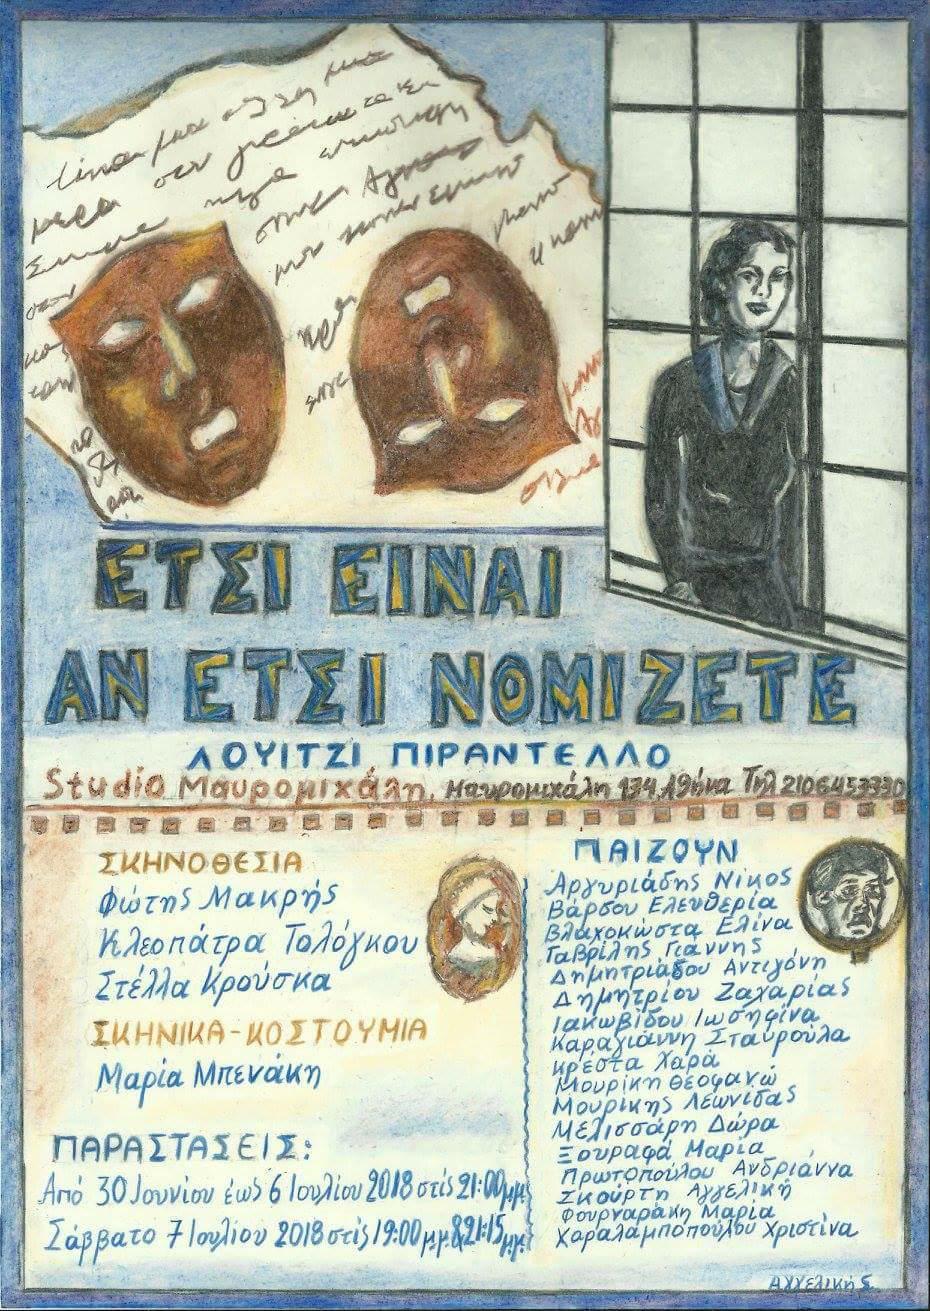 ΕΤΣΙ ΕΙΝΑΙ
ΑΝ ΕΤΣΙ ΝΟΜΙΖΕΤΕ
ΛΟΥΙΤΖΙ ΠΙΡΑΝΤΕΛΛΟ
Studio Μαυρομιχάλη, Μαυρομιχάλη 134, Αθήνα Τηλ 2106453330
ΣΚΗΝΟΘΕΣΙΑ
Φώτης Μακρής
Κλεοπάτρα Τολόγκου
Στέλλα Κρούσκα
ΣΚΗΝΙΚΑ-ΚΟΣΤΟΥΜΙΑ
Μαρία Μπενάκη
ΠΑΡΑΣΤΑΣΕΙΣ:
Από 30 Ιουνίου έως 6 Ιουλίου 2018 στις 21:00 μ.μ.
Σάββατο 7 Ιουλίου 2018 στις 19:00 μ.μ. & 21:15 μ.μ.
ΠΑΙΖΟΥΝ
Αργυριάδης Νίκος
Βάρσου Ελευθερία
Βλαχοκώστα Ελίνα
Γαβρίλης Γιάννης
Δημητριάδου Αντιγόνη
Δημητρίου Ζαχαρίας
Ιακωβίδου Ιωσηφίνα
Καραγιάννη Σταυρούλα
Κρέστα Χαρά
Μουρίκη Θεοφανώ
Μουρίκης Λεωνίδας
Μελισσάρη Δώρα
Ξουραφά Μαρία
Πρωτοπούλου Ανδριάννα
Σκούρτη Αγγελική
Φουρναράκη Μαρία
Χαραλαμποπούλου Χριστίνα
Αγγελική Σ.